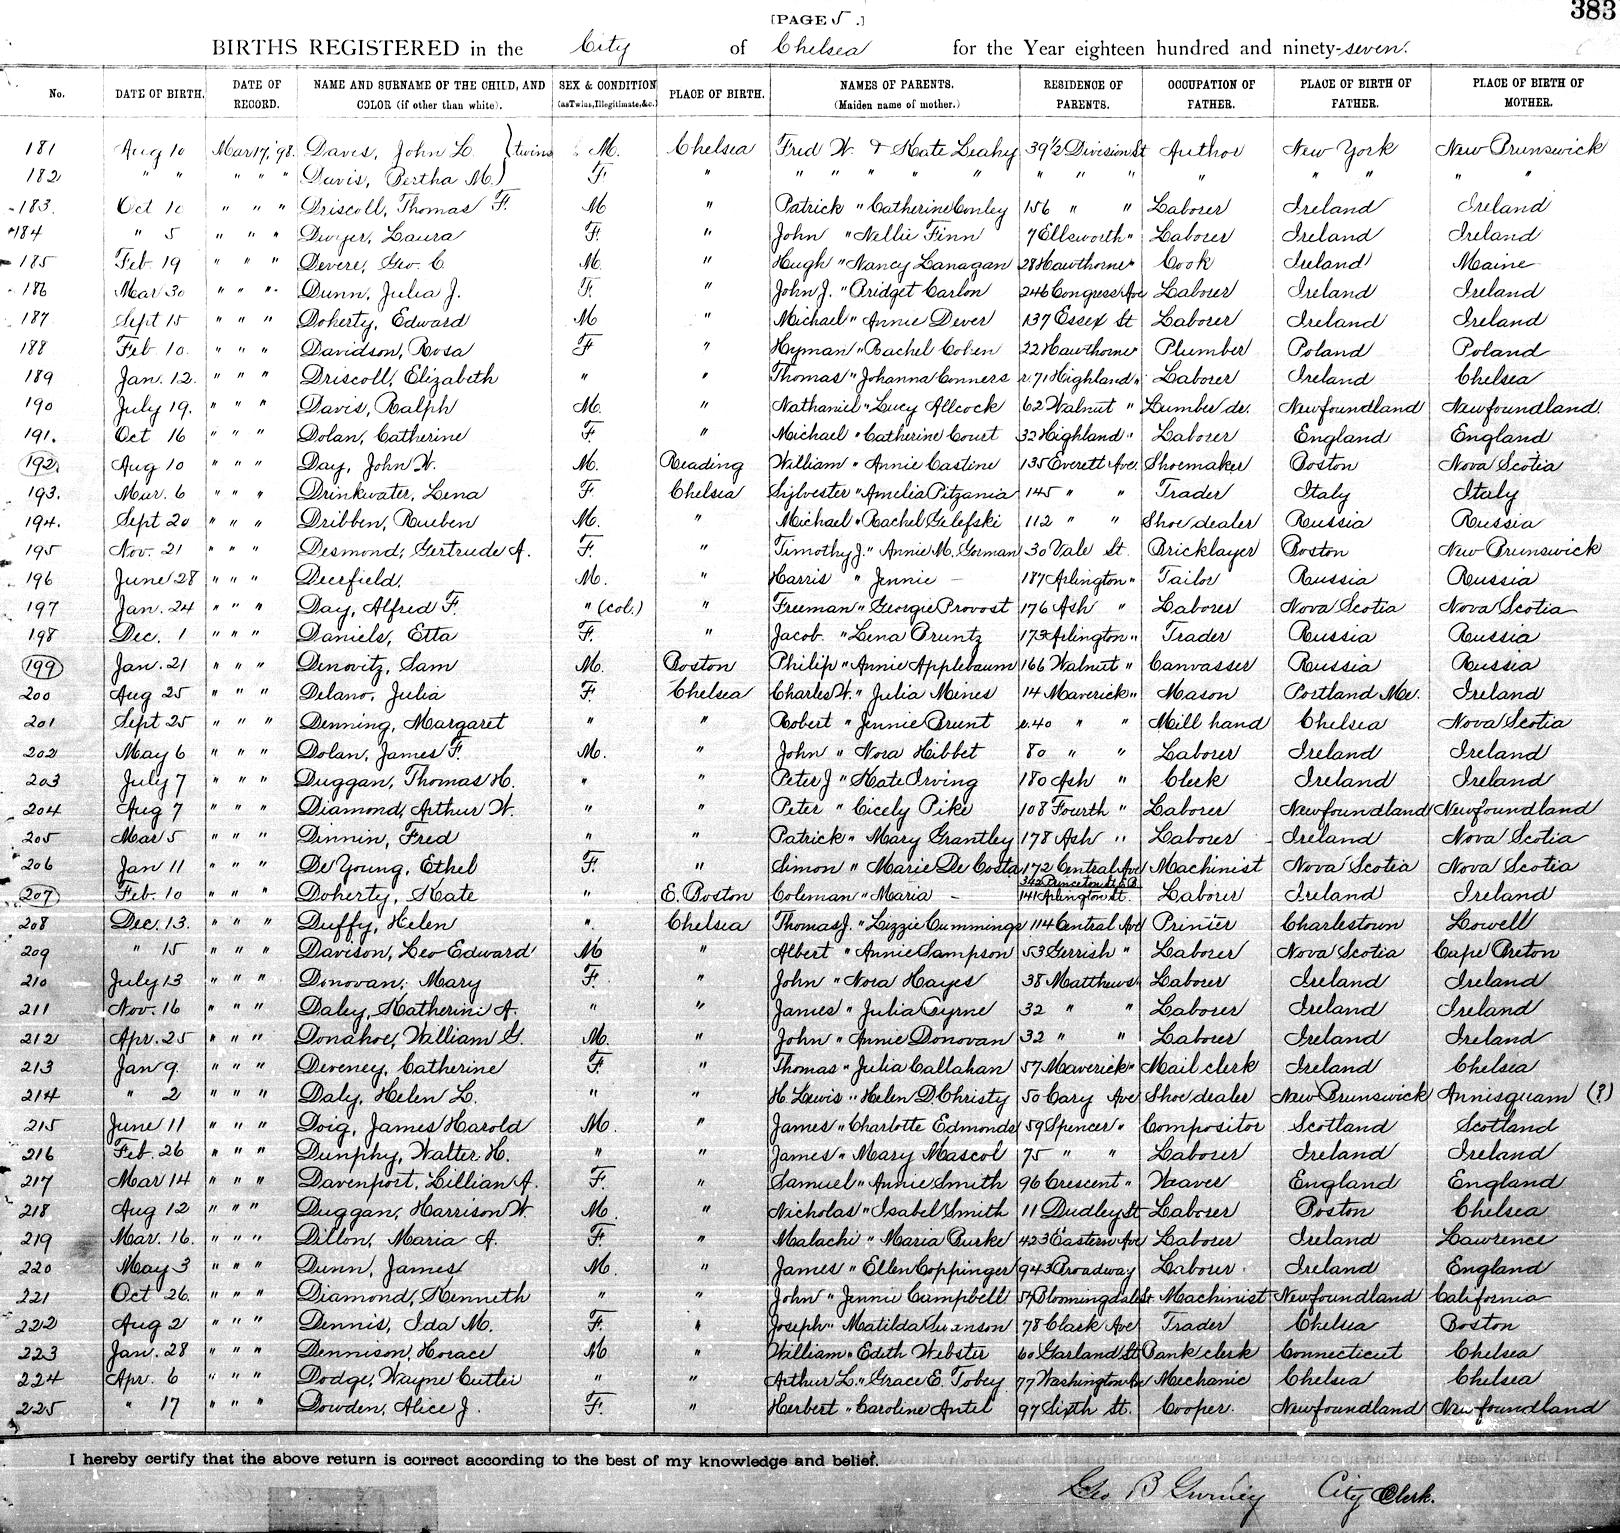 [PAGE 5.]
383
BIRTHS REGISTERED in the City of Chelsea for the Year eighteen hundred and ninety-seven.
No. DATE OF BIRTH. DATE OF RECORD. NAME AND SURNAME OF THE CHILD, AND COLOR (if other than white). SEX & CONDITION (as Twins, Illegitimate, &c.) PLACE OF BIRTH. NAMES OF PARENTS. (Maiden name of mother.) RESIDENCE OF PARENTS. OCCUPATION OF FATHER. PLACE OF BIRTH OF FATHER. PLACE OF BIRTH OF MOTHER.
181 Aug 10 Mar 17, '98. Davis, John L. } twins M. Chelsea Fred W. & Kate Leahy 39 1/2 Division St Author New York New Brunswick
182 " " " " " Davis, Bertha M. F. " " " " " " " " " " " " " "
183. Oct 10 " " " Driscoll, Thomas F. M " Patrick " Catherine Conley 156 " " Laborer Ireland Ireland
184 " 5 " " " Dwyer, Laura F. " John " Nellie Finn 7 Ellsworth " Laborer Ireland Ireland
185 Feb 19 " " " Devere, Geo. C. M. " Hugh " Nancy Lanagan 28 Hawthorne " Cook Ireland Maine
186 Mar 30 " " " Dunn, Julia J. F. " John J. " Bridget Carlon 246 Congress Ave Laborer Ireland Ireland
187 Sept 15 " " " Doherty, Edward M " Michael " Annie Dever 137 Essex St Laborer Ireland Ireland
188 Feb 10. " " " Davidson, Rosa F " Hyman " Rachel Cohen 22 Hawthorne " Plumber Poland Poland
189 Jan. 12. " " " Driscoll, Elizabeth " " Thomas " Johanna Conners r. 71 Highland " Laborer Ireland Chelsea
190 July 19. " " " Davis, Ralph M. " Nathaniel " Lucy Allcock 62 Walnut " Lumber de. Newfoundland Newfoundland.
191. Oct 16 " " " Dolan, Catherine F. " Michael " Catherine Court 32 Highland " Laborer England England
192. Aug 10 " " " Day, John W. M. Reading William " Annie Castine 135 Everett Ave. Shoemaker Boston Nova Scotia
193. Mar. 6 " " " Drinkwater, Lena F. Chelsea Sylvester " Amelia Pitzania 145 " " Trader Italy Italy
194. Sept 20 " " " Dribben, Reuben M. " Michael " Rachel Gelefski 112 " " Shoe dealer Russia Russia
195 Nov. 21 " " " Desmond, Gertrude A. F. " Timothy J. " Annie M. Gorman 30 Vale St. Bricklayer Boston New Brunswick
196 June 28 " " " Deerfield, M. " Harris " Jennie - 187 Arlington " Tailor Russia Russia
197 Jan. 24 " " " Day, Alfred F. " (col.) " Freeman " Georgie Provost 176 Ash " Laborer Nova Scotia Nova Scotia
198 Dec. 1 " " " Daniels, Etta F. " Jacob. " Lena Bruntz 173 Arlington " Trader Russia Russia
199 Jan. 21 " " " Denovitz, Sam M. Boston Philip " Annie Applebaum 166 Walnut " Canvasser Russia Russia
200 Aug 25 " " " Delano, Julia F. Chelsea Charles W. " Julia Mines 14 Maverick " Mason Portland Me. Ireland
201 Sept 25 " " " Denning, Margaret " " Robert " Jennie Brunt r. 40 " " Mill hand Chelsea Nova Scotia
202 May 6 " " " Dolan, James F. M. " John " Nora Hibbet 80 " " Laborer Ireland Ireland
203 July 7 " " " Duggan, Thomas H. " " Peter J " Kate Irving 180 Ash " Clerk Ireland Ireland
204 Aug 7 " " " Diamond, Arthur W. " " Peter " Cicely Pike 108 Fourth " Laborer Newfoundland Newfoundland
205 Mar 5 " " " Dinnin, Fred " " Patrick " Mary Grantley 178 Ash " Laborer Ireland Nova Scotia
206 Jan 11 " " " De Young, Ethel F. " Simon " Marie De Costa 172 Central Ave Machinist Nova Scotia Nova Scotia
207 Feb. 10 " " " Doherty, Kate " E. Boston Coleman " Maria - 342 Princeton St E.B. 141 Arlington St. Laborer Ireland Ireland
208 Dec. 13. " " " Duffy, Helen " Chelsea Thomas J. " Lizzie Cummings 114 Central Ave Printer Charlestown Lowell
209 " 15 " " " Davison, Leo Edward M " Albert " Annie Sampson 53 Gerrish " Laborer Nova Scotia Cape Breton
210 July 13 " " " Donovan, Mary F. " John " Nora Hayes 38 Matthews Laborer Ireland Ireland
211 Nov. 16 " " " Daley, Katherine A. " " James " Julia Byrne 32 " " Laborer Ireland Ireland
212 Apr. 25 " " " Donahoe, William G. M. " John " Annie Donovan 32 " " Laborer Ireland Ireland
213 Jan 9. " " " Deveney, Catherine F " Thomas " Julia Callahan 57 Maverick " Mail clerk Ireland Chelsea
214 " 2 " " " Daly, Helen L. " " H. Lewis " Helen D. Christy 50 Cary Ave Shoe dealer New Brunswick Annisquam (?)
215 June 11 " " " Doig, James Harold M. " James " Charlotte Edmonds 59 Spencer " Compositor Scotland Scotland
216 Feb. 26 " " " Dunphy, Walter H. " " James " Mary Mascol 75 " " Laborer Ireland Ireland
217 Mar 14 " " " Davenport, Lillian A. F. " Samuel " Annie Smith 96 Crescent " Weaver England England
218 Aug 12 " " " Duggan, Harrison W. M. " Nicholas " Isabel Smith 11 Dudley St Laborer Boston Chelsea
219 Mar. 16. " " " Dillon, Maria A. F. " Malachi " Maria Burke 423 Eastern Ave Laborer Ireland Lawrence
220 May 3 " " " Dunn, James M. " James " Ellen Coppinger 943 Broadway Laborer Ireland England
221 Oct 26. " " " Diamond, Kenneth " " John " Jennie Campbell 57 Bloomingdale St Machinist Newfoundland California
222 Aug 2 " " " Dennis, Ida M. F. " Joseph " Matilda Swanson 78 Clark Ave Trader Chelsea Boston
223 Jan. 28 " " " Dennison, Horace M " William " Edith Webster 60 Garland St Bank clerk Connecticut Chelsea
224 Apr. 6 " " " Dodge, Wayne Cutler " " Arthur L. " Grace E. Tobey 77 Washington Ave Mechanic Chelsea Chelsea
225 " 17 " " " Dowden, Alice J. F. " Herbert " Caroline Antil 97 Sixth St. Cooper. Newfoundland Newfoundland
I hereby certify that the above return is correct according to the best of my knowledge and belief.
Geo B Gurney City Clerk.